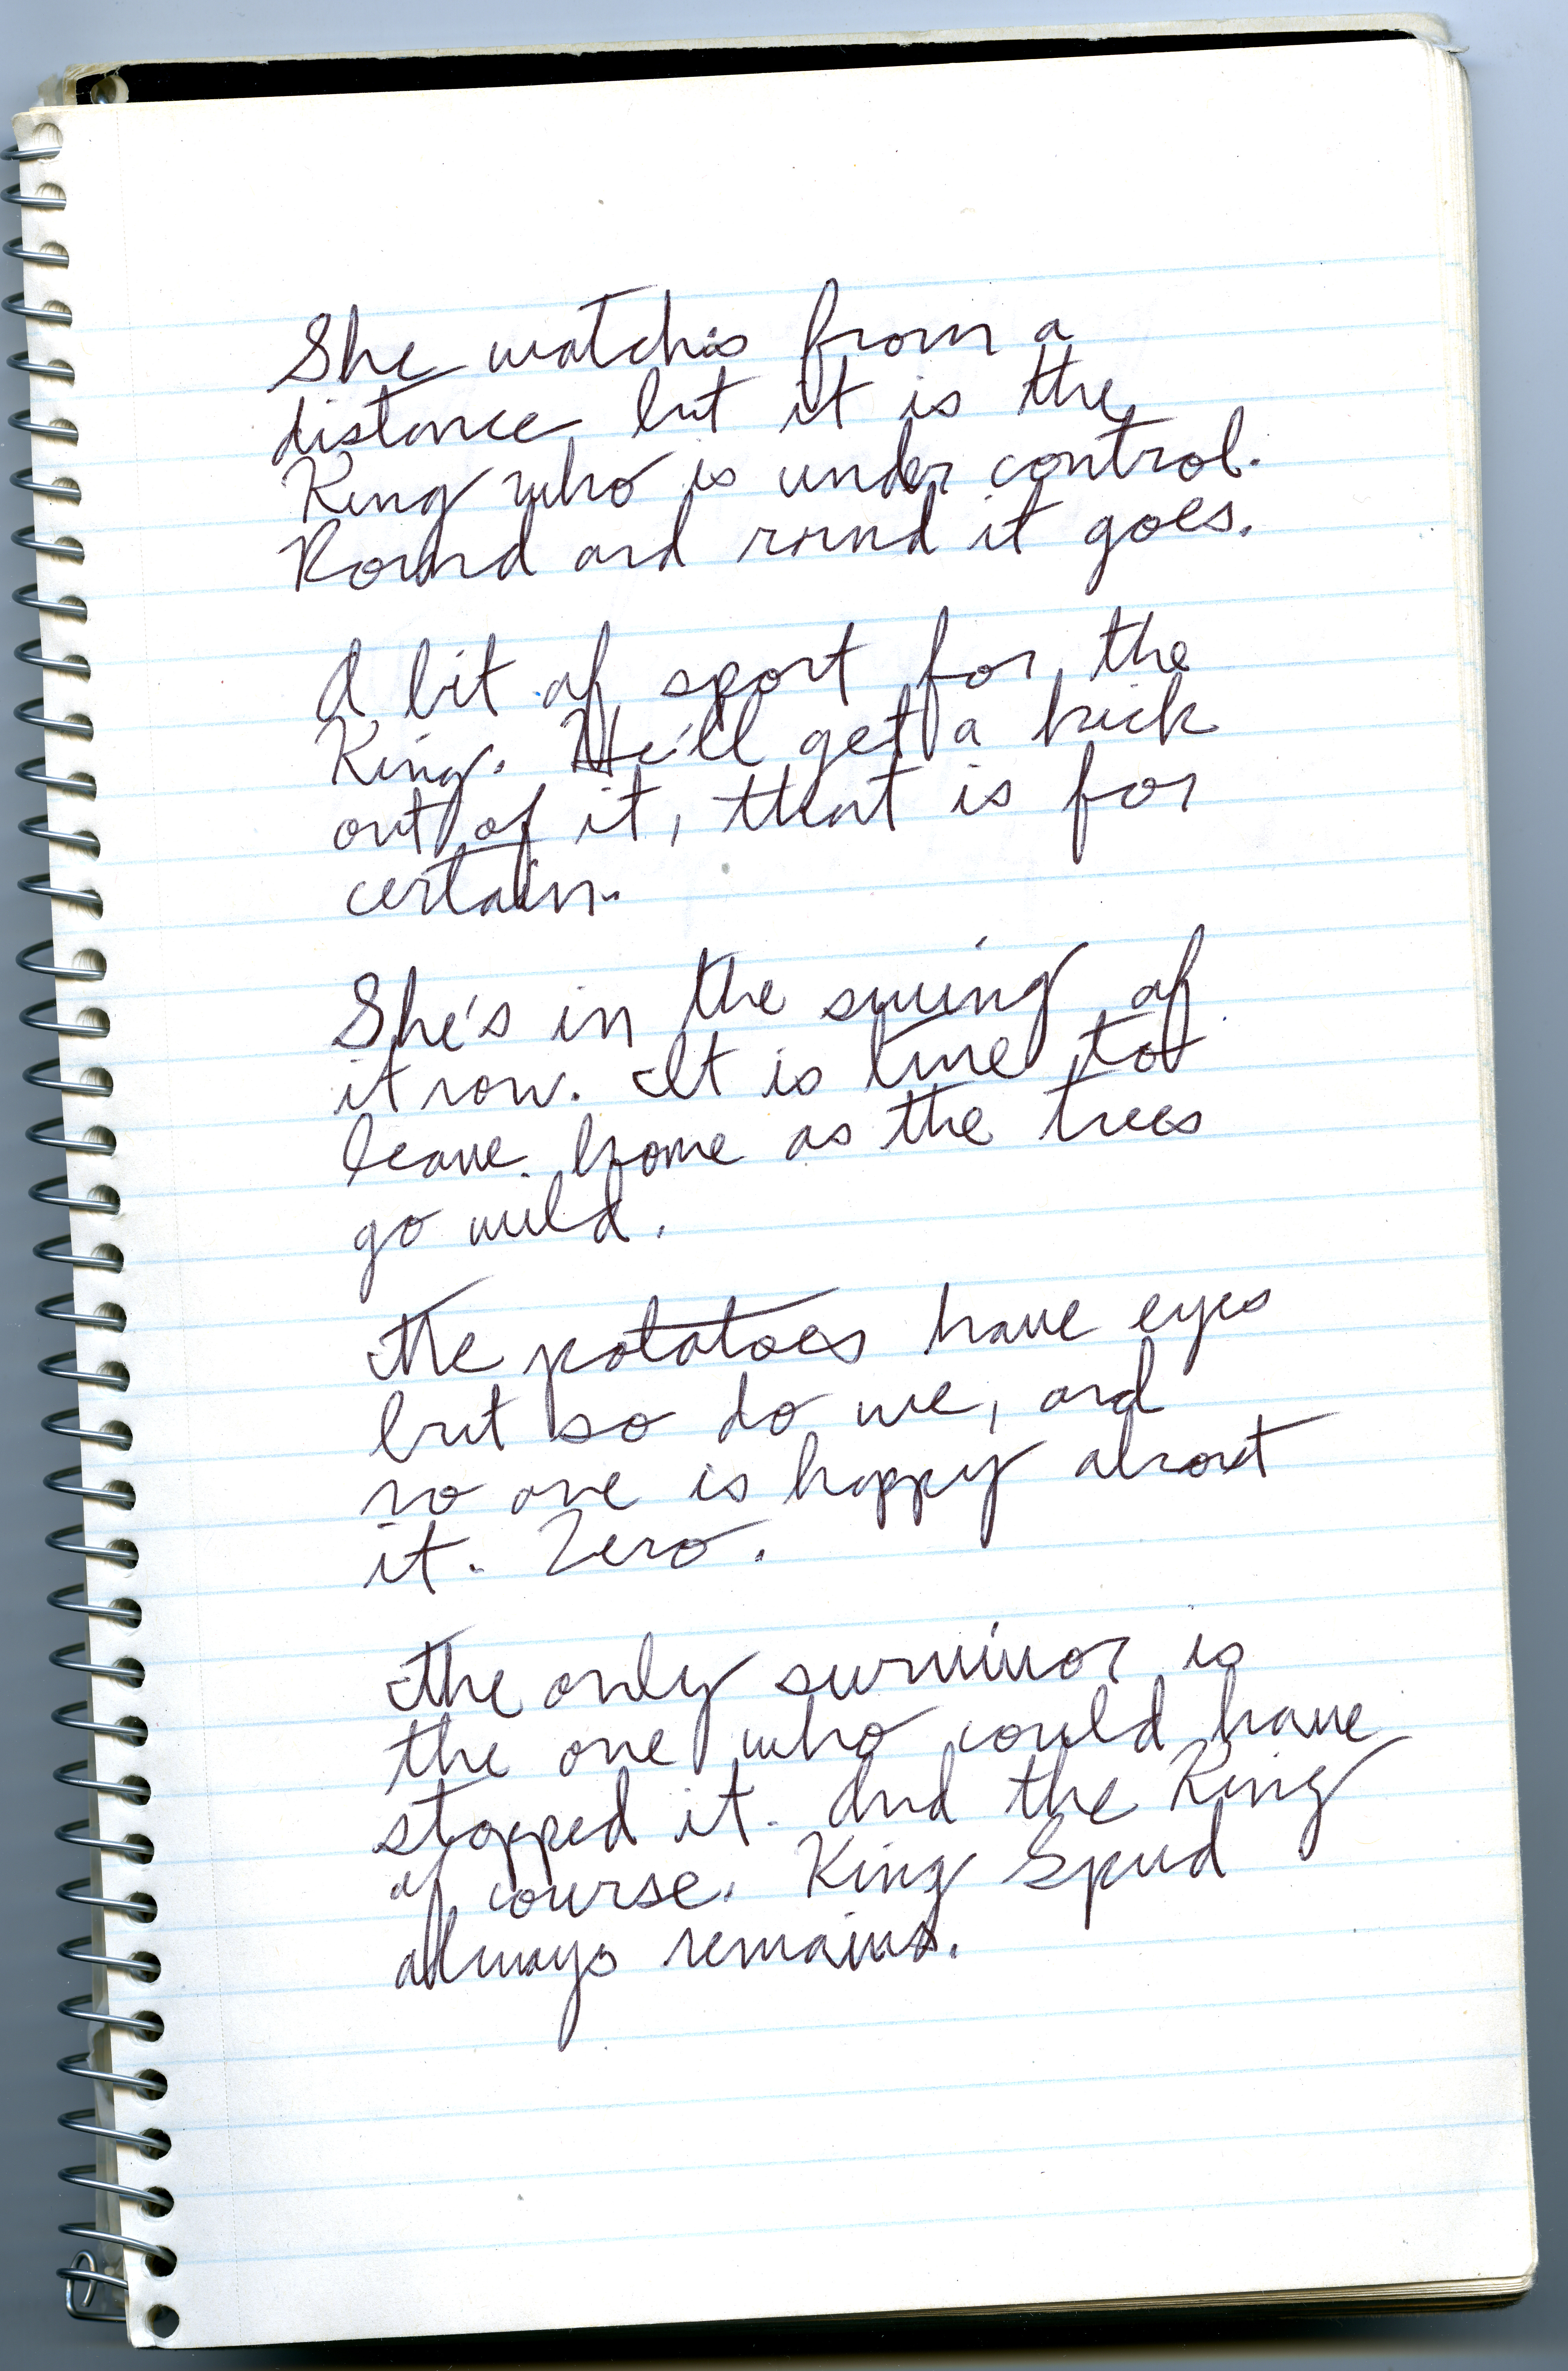 She watches from a
distance, but it is the
King who is under control.
Round and round it goes.
A bit of sport for the
King. He'll get a kick
out of it, that is for
certain.
She's in the swing of
it now. It is time to
leave home as the trees
go wild.
The potatoes have eyes
but so do we, and
no one is happy about
it. Zero.
The only survivor is
the one who could have
stopped it. And the King
of course. King Spud
always remains.